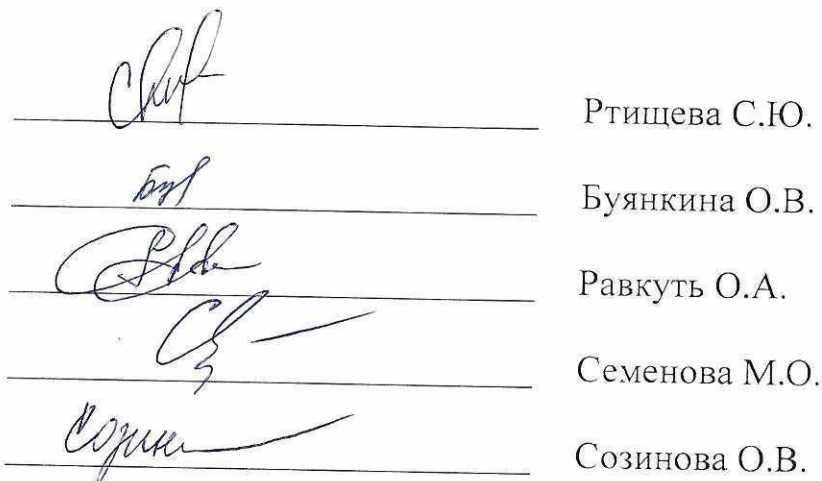 Ртищева С.Ю.
Буянкина О.В.
Равкуть О.А.
Семенова М.О.
Созинова О.В.